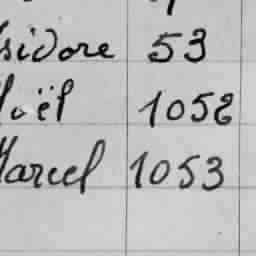 Isidore 53
Noël 1052
Marcel 1053